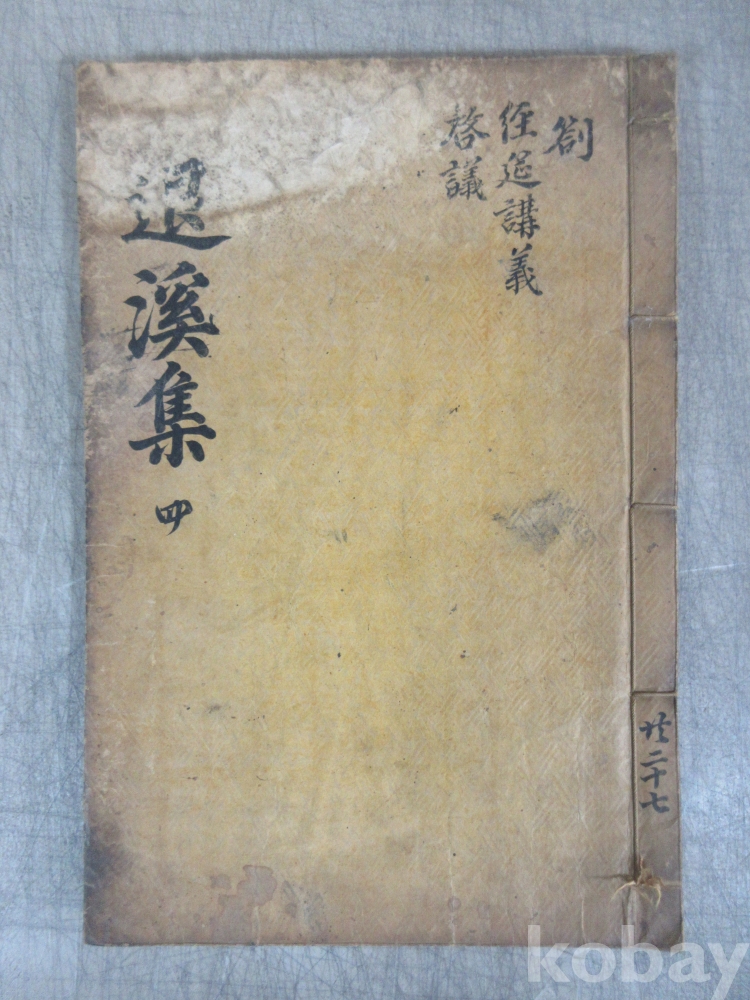 劄
經筵講義
啓議
退溪集 四
共二十七
kobay